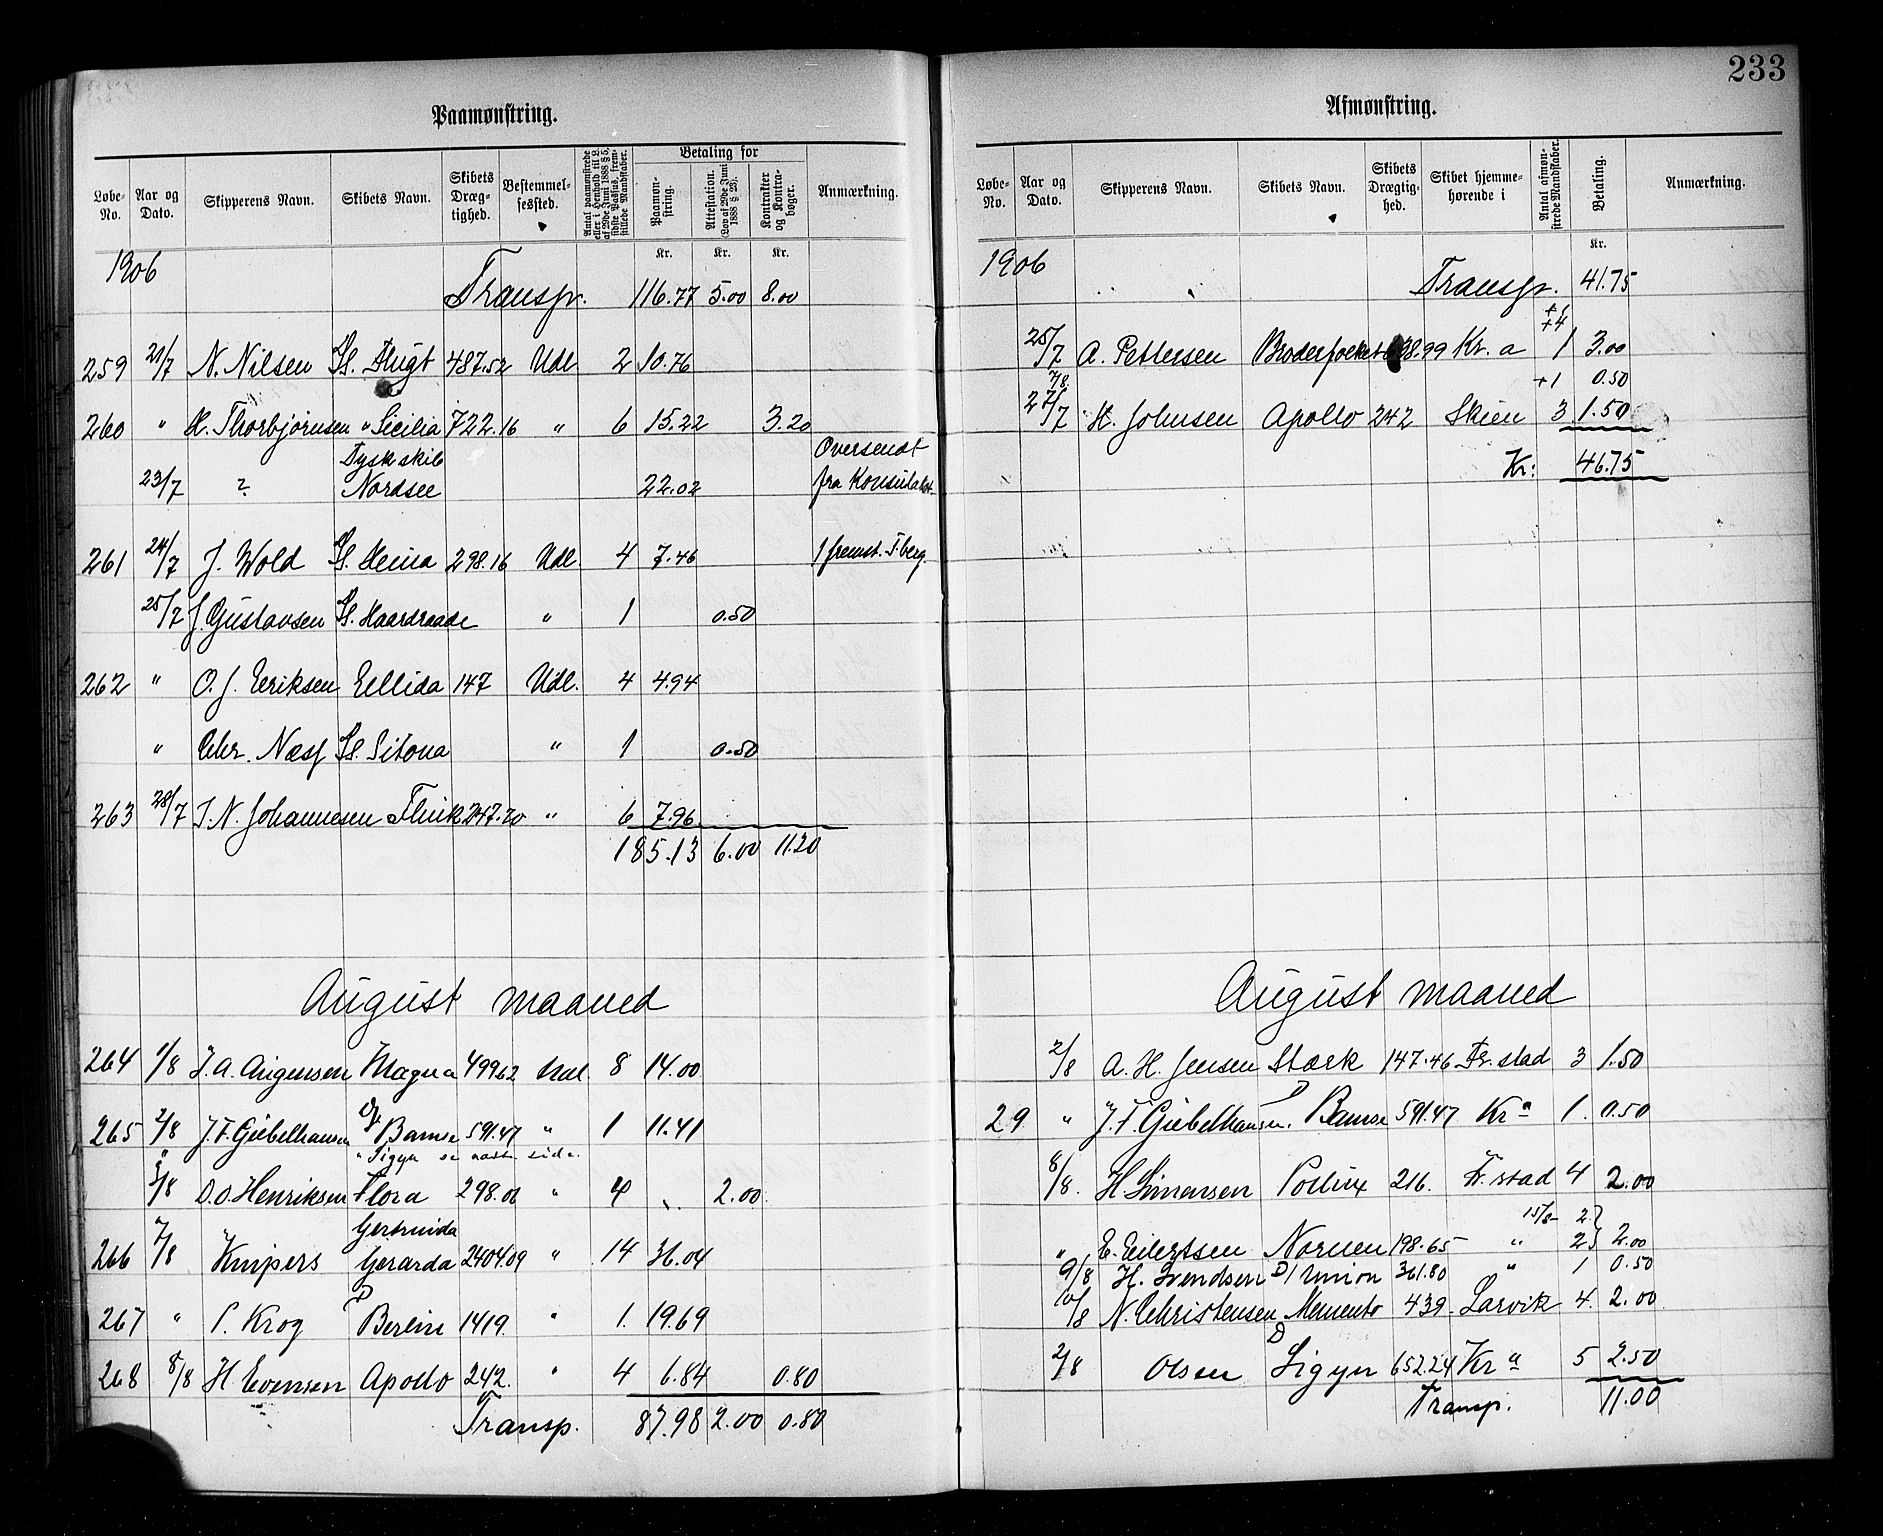 233
Paamønstring.
Løbe-No. Aar og Dato. Skipperens Navn. Skibets Navn. Skibets Dræg-tighed. Bestemmel-sessted. Antal paamønstrede eller i Henhold til L. af 29de Juni 1888 § 5, sidste Passus, frem-stillede Mandskaber. Betaling for Paamøn-string. Attestation. (Lov af 29de Juni 1888 § 23). Kontrakter og Kontra-bøger. Anmærkning.
Kr. Kr. Kr.
1906
Transp. 116.77 5.00 8.00
259 21/7 N. Nilsen Ss. Flugt 487.52 Udl 2 10.76
260 " H. Thorbjørnsen " Sicilia 722.16 " 6 15.22 3.20
23/7 ? Tysk skib Nordsee 22.02 Oversendt fra Konsulatet.
261 24/7 J. Wold Ss. 298.16 Udl. 4 7.46 1 fremst. T.berg.
25/7 J. Gustavsen Ss. Haardraade " 1 0.50
262 " O. J. Eriksen Ellida 147 Udl. 4 4.94
" Chr. Næss Ss. Sitona " 1 0.50
263 28/7 J. N. Johannesen Flink 247.20 " 6 7.96
185.13 6.00 11.20
August maaned
264 1/8 J. A. Magna 499.62 Udl. 8 14.00
265 2/8 J. F. Giebelhausen D/ Bamse 591.47 " 1 11.41
" Sigyn se næste side.
3/8 D. O. Henriksen Flora 298.06 " 4 " 2.00
266 7/8 Knipers Gertruida Gerarda 2404.09 " 14 36.04
267 " P. Krog D Berlin 1419 " 1. 19.69
268 8/8 H. Evensen Apollo 242. " 4 6.84 0.80
Transp. 87.98 2.00 0.80
Afmønstring.
Løbe-No. Aar og Dato. Skipperens Navn. Skibets Navn. Skibets Drægtig-hed. Skibet hjemme-hørende i Antal afmøn-strede Mandskaber. Betaling. Anmærkning.
Kr.
1906
Transp. 41.75
+1
+4
25/7 A. Pettersen Broderfolket 638.99 Kr. a 1 3.00
7/8. +1 0.50
27/7 H. Johnsen Apollo 242 Skien 3 1.50
Kr: 46.75
August maaned
2/8 A. H. Jensen Stærk 147.46 Fr. stad 3 1.50
29 " J. F. Giebelhausen. D Bamse 591.47 Kr a 1. 0.50
8/8. H. Simensen Pollux 216. Fr. stad 4 2.00
15/8 2
" E. Eilertsen Nornen 198.65 " 2 2.00
9/8 H. Svendsen D/ Union 361.80 " 1 0.50
10/8 N. Christensen Memento 439. Larvik 4. 2.00
2/8 Olsen D Sigyn 652.24 Kr a 5 2.50
Transp. 11.00